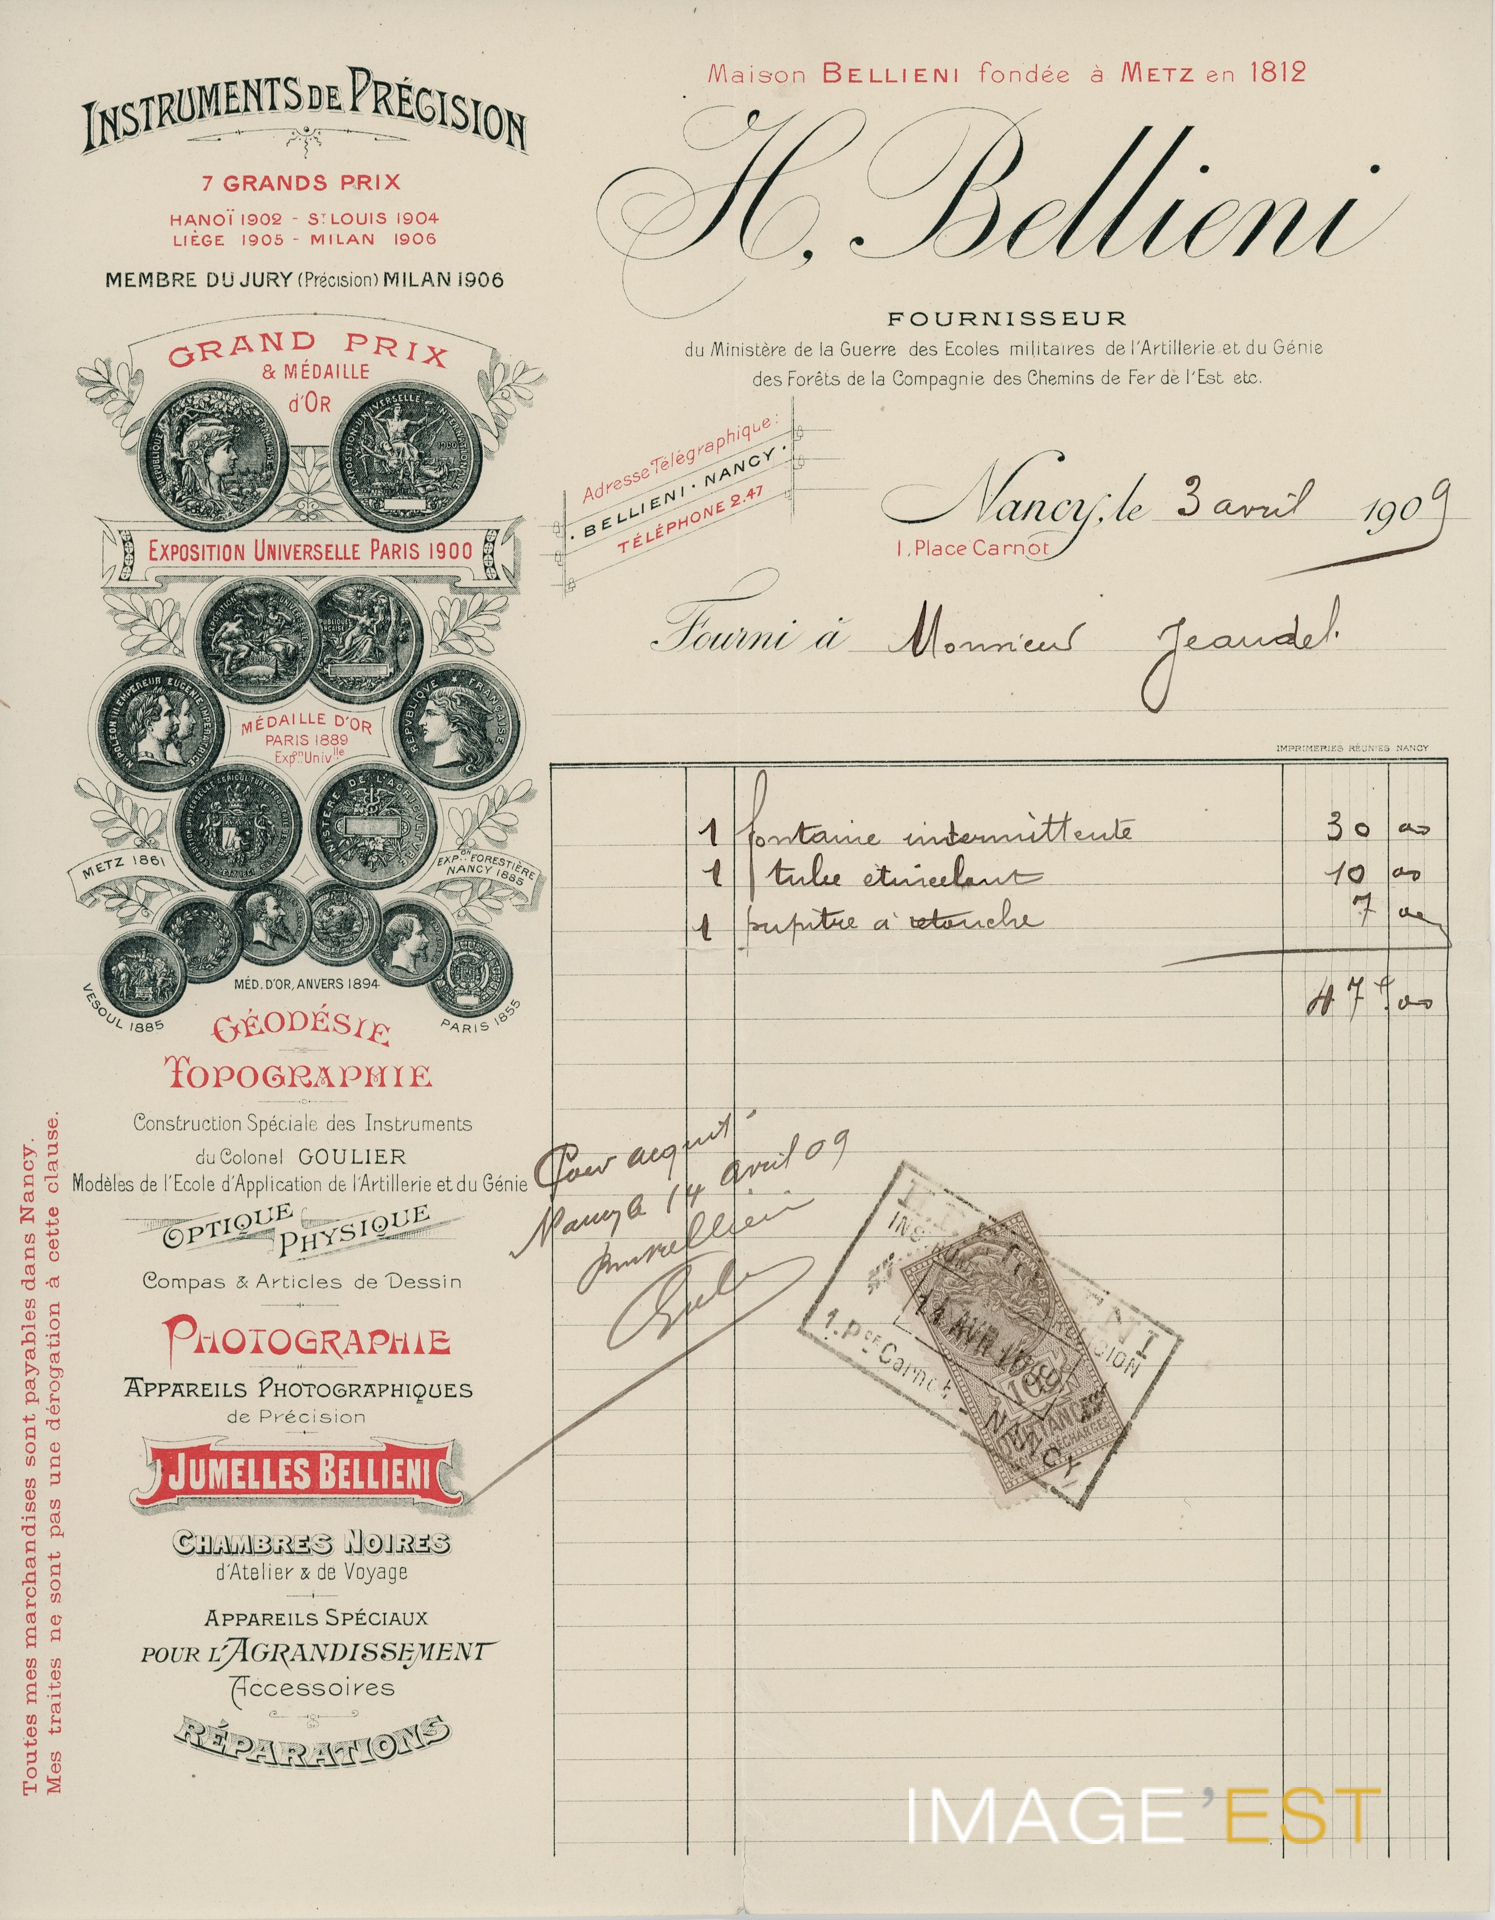 INSTRUMENTS DE PRÉCISION
7 GRANDS PRIX
HANOÏ 1902 - ST LOUIS 1904
LIÈGE 1905 - MILAN 1906
MEMBRE DU JURY (Précision) MILAN 1906
GRAND PRIX
& MÉDAILLE
d'OR
EXPOSITION UNIVERSELLE PARIS 1900
MÉDAILLE D'OR
PARIS 1889
Expon Univlle
METZ 1861
EXPON FORESTIÈRE
NANCY 1885
MÉD. D'OR, ANVERS 1894
VESOUL 1885
PARIS 1855
GÉODÉSIE
TOPOGRAPHIE
Construction Spéciale des Instruments
du Colonel GOULIER
Modèles de l'Ecole d'Application de l'Artillerie et du Génie
OPTIQUE
PHYSIQUE
Compas & Articles de Dessin
PHOTOGRAPHIE
APPAREILS PHOTOGRAPHIQUES
de Précision
JUMELLES BELLIENI
CHAMBRES NOIRES
d'Atelier & de Voyage
APPAREILS SPÉCIAUX
POUR L'AGRANDISSEMENT
Accessoires
RÉPARATIONS
Toutes mes marchandises sont payables dans Nancy.
Mes traites ne sont pas une dérogation à cette clause.
Maison BELLIENI fondée à METZ en 1812
H. Bellieni
FOURNISSEUR
du Ministère de la Guerre des Ecoles militaires de l'Artillerie et du Génie
des Forêts de la Compagnie des Chemins de Fer de l'Est etc.
Adresse Télégraphique:
BELLIENI · NANCY
TÉLÉPHONE 2.47
Nancy, le 3 avril 1909
1, Place Carnot
Fourni à Monsieur Jeaudel.
IMPRIMERIES RÉUNIES NANCY
1 fontaine intermittente 30 00
1 tube étincelant 10 00
1 pupitre à retouche 7 00
47 f. 00
Pour acquit
Nancy le 14 avril 09
14 AVR 1909
1. Pce Carnot - NANCY
IMAGE'EST